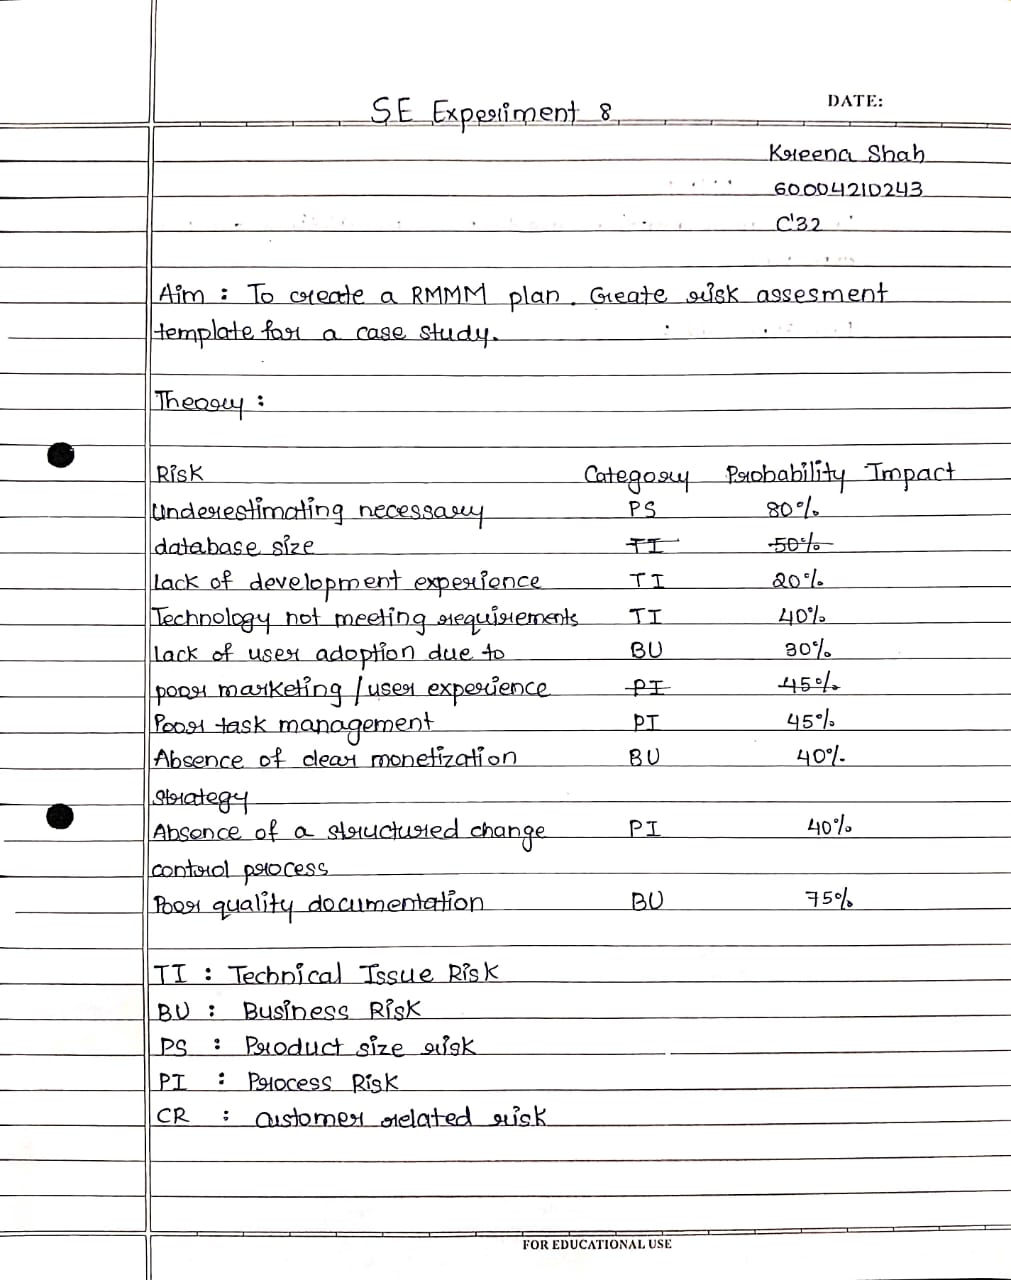 DATE:
SE Experiment 8
Kreena Shah
60004210243
C'32
Aim : To create a RMMM plan. Create risk assesment
template for a case study.
Theory :
Risk Category Probability Impact
Underestimating necessary PS 80%
database size TI 50%
Lack of development experience TI 20%
Technology not meeting requirements TI 40%
Lack of user adoption due to BU 30%
poor marketing / user experience PI 45%
Poor task management PI 45%
Absence of clear monetization BU 40%
strategy
Absence of a structured change PI 40%
control process
Poor quality documentation BU 75%
TI : Technical Issue Risk
BU : Business Risk
PS : Product size risk
PI : Process Risk
CR : Customer related risk
FOR EDUCATIONAL USE